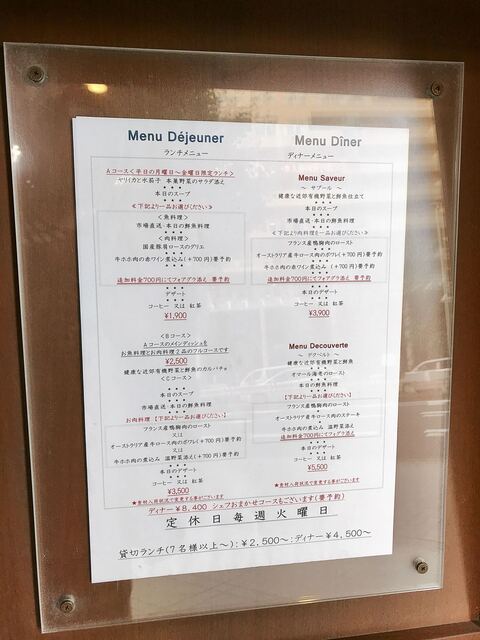 Menu Déjeuner
ランチメニュー
Aコース<平日の月曜日～金曜日限定ランチ>
ヤリイカと水茄子 本巣野菜のサラダ添え
本日のスープ
《下記より一品お選びください》
<魚料理>
市場直送・本日の鮮魚料理
<肉料理>
国産豚肩ロースのグリエ
牛ホホ肉の赤ワイン煮込み(+700円)要予約
追加料金700円にてフォアグラ添え 要予約
デザート
コーヒー 又は 紅茶
¥1,900
<Bコース>
Aコースのメインディッシュを
お魚料理とお肉料理2品のフルコースです
¥2,500
健康な近郊有機野菜と鮮魚のカルパチョ
<Cコース>
本日のスープ
市場直送・本日の鮮魚料理
お肉料理【下記より一品お選びください】
フランス産鴨胸肉のロースト
又は
オーストラリア産牛ロース肉のポワレ(+700円)要予約
又は
牛ホホ肉の煮込み 温野菜添え(+700円)要予約
本日のデザート
コーヒー 又は 紅茶
¥3,500
★食材入荷状況で変更する事がございます
Menu Dîner
ディナーメニュー
Menu Saveur
～ サブール ～
健康な近郊有機野菜と鮮魚仕立て
本日のスープ
市場直送・本日の鮮魚料理
《下記よりお肉料理を一品お選びください》
フランス産鴨胸肉のロースト
オーストラリア産牛ロース肉のポワレ(+700円)要予約
牛ホホ肉の赤ワイン煮込み(+700円)要予約
追加料金700円にてフォアグラ添え 要予約
本日のデザート
コーヒー 又は 紅茶
¥3,900
Menu Decouverte
～ デクベルト ～
健康な近郊有機野菜と鮮魚
オマール海老のロースト
本日の鮮魚料理
【下記より一品お選びください】
フランス産鴨胸肉のロースト
オーストラリア産牛ロース肉のステーキ
牛ホホ肉の煮込み 温野菜添え
追加料金700円にてフォアグラ添え
本日のデザート
コーヒー 又は 紅茶
¥5,500
★食材入荷状況で変更する事がございます
ディナー¥8,400 シェフおまかせコースもございます(要予約)
定休日毎週火曜日
貸切ランチ(7名様以上～):¥2,500～:ディナー¥4,500～